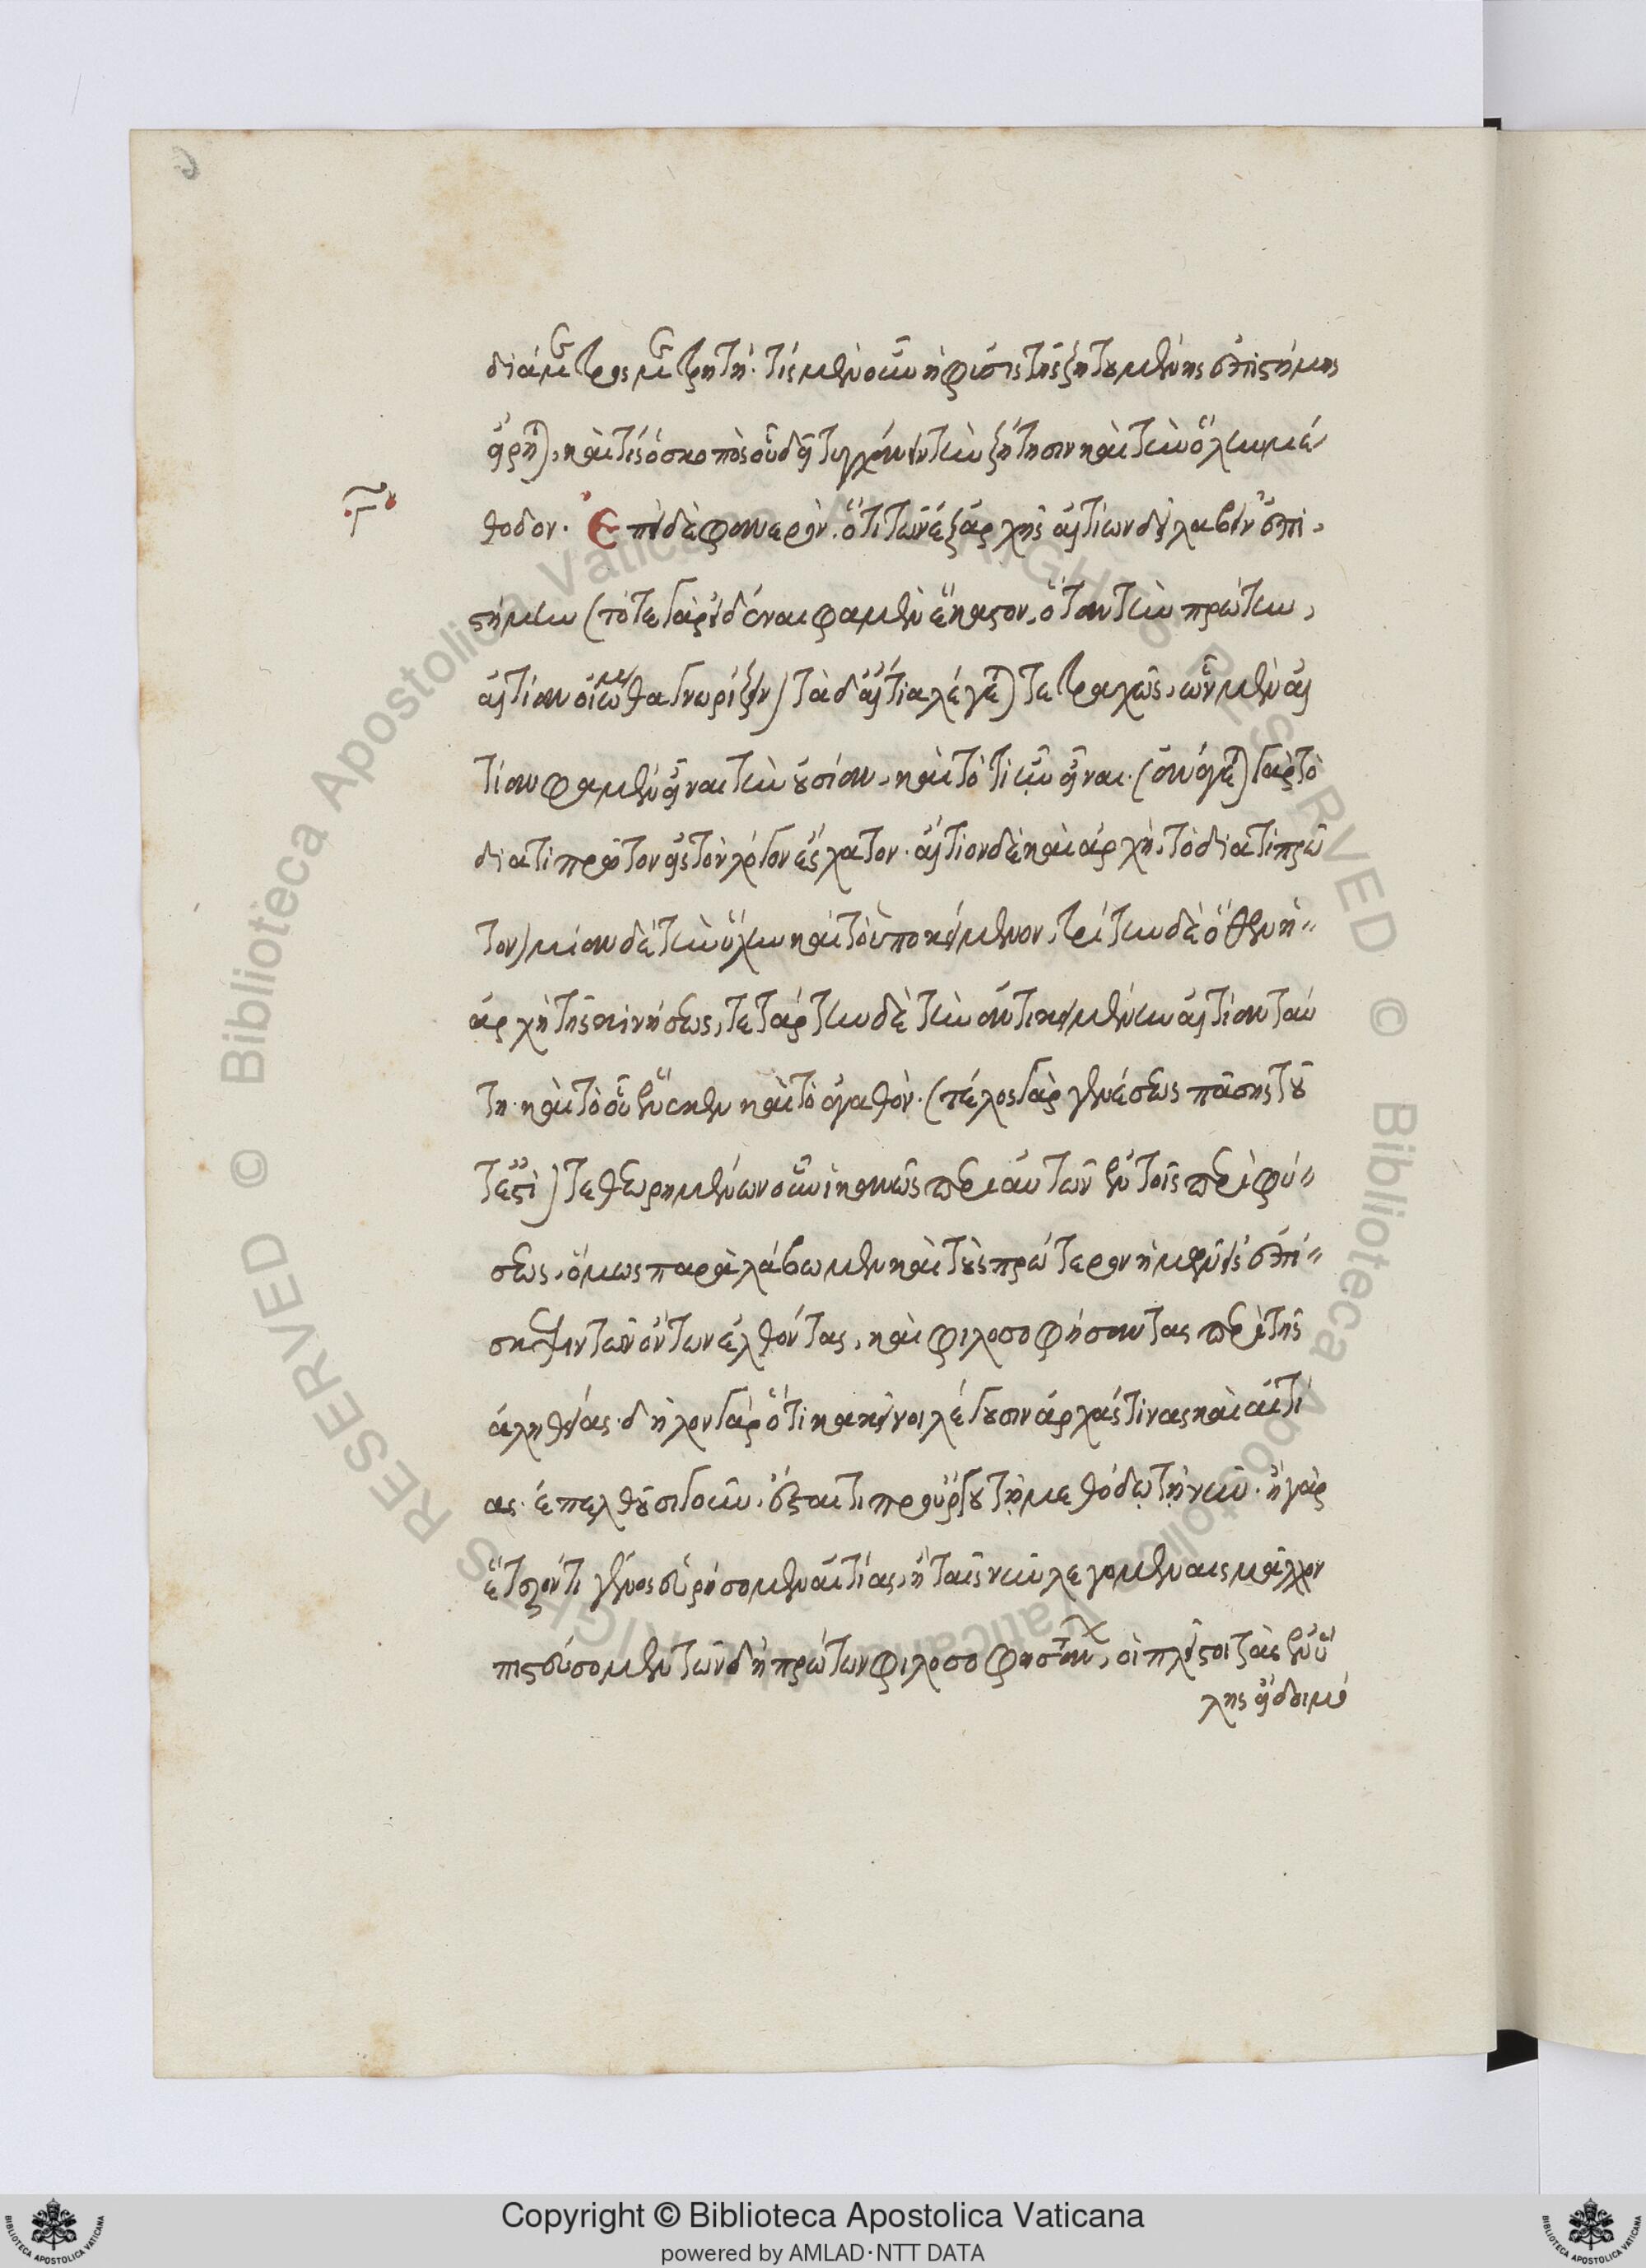 διάμετρος μετρητή· τίς μὲν οὖν ἡ φύσις τῆς ζητουμένης ἐπιστήμης
εἴρηται, καὶ τίς ὁ σκοπὸς οὗ δεῖ τυγχάνειν τὴν ζήτησιν καὶ τὴν ὅλην μέ
θοδον. Ἐπεὶ δὲ φανερὸν, ὅτι τῶν ἐξ ἀρχῆς αἰτίων δεῖ λαβεῖν ἐπι
στήμην (τότε γὰρ εἰδέναι φαμὲν ἕκαστον, ὅταν τὴν πρώτην
αἰτίαν οἰώμεθα γνωρίζειν) τὰ δ' αἴτια λέγεται τετραχῶς, ὧν μὲν αἰ
τίαν φαμὲν εἶναι τὴν οὐσίαν, καὶ τὸ τί ἦν εἶναι. (ἀνάγεται γὰρ τὸ
διατί πρῶτον εἰς τὸν λόγον ἔσχατον· αἴτιον δὲ καὶ ἀρχὴ, τὸ διατί πρῶ
τον) μίαν δὲ τὴν ὕλην καὶ τὸ ὑποκείμενον, τρίτην δὲ ὅθεν ἡ
ἀρχὴ τῆς κινήσεως, τετάρτην δὲ τὴν ἀντικειμένην αἰτίαν ταύ
τῃ· καὶ τὸ οὗ ἕνεκεν καὶ τὸ ἀγαθόν. (τέλος γὰρ γενέσεως πάσης τοῦ
τ' ἐστὶ) τεθεωρημένων οὖν ἱκανῶς περὶ αὐτῶν ἐν τοῖς περὶ φύ
σεως, ὅμως παραλάβωμεν καὶ τοὺς πρώτερον ἡμῶν εἰς ἐπί
σκεψιν τῶν ὄντων ἐλθόντας, καὶ φιλοσοφήσαντας περὶ τῆς
ἀληθείας· δῆλον γὰρ ὅτι κακεῖνοι λέγουσιν ἀρχάς τινας καὶ αἰτί
ας. ἐπελθοῦσι γοῦν, ἔσται τι προὔργου τῇ μεθόδῳ τῇ νῦν· ἢ γὰρ
ἕτερόν τι γένος εὑρήσομεν αἰτίας, ἢ ταῖς νῦν λεγομέναις μᾶλλον
πιστεύσομεν τῶν δὴ πρώτων φιλοσοφησάντων, οἱ πλεῖστοι τὰς ἐν ὕ
λης εἴδει μό
© Biblioteca Apostolica Vaticana ALL RIGHTS RESERVED © Biblioteca Apostolica Vaticana ALL RIGHTS RESERVED
Copyright © Biblioteca Apostolica Vaticana
powered by AMLAD·NTT DATA